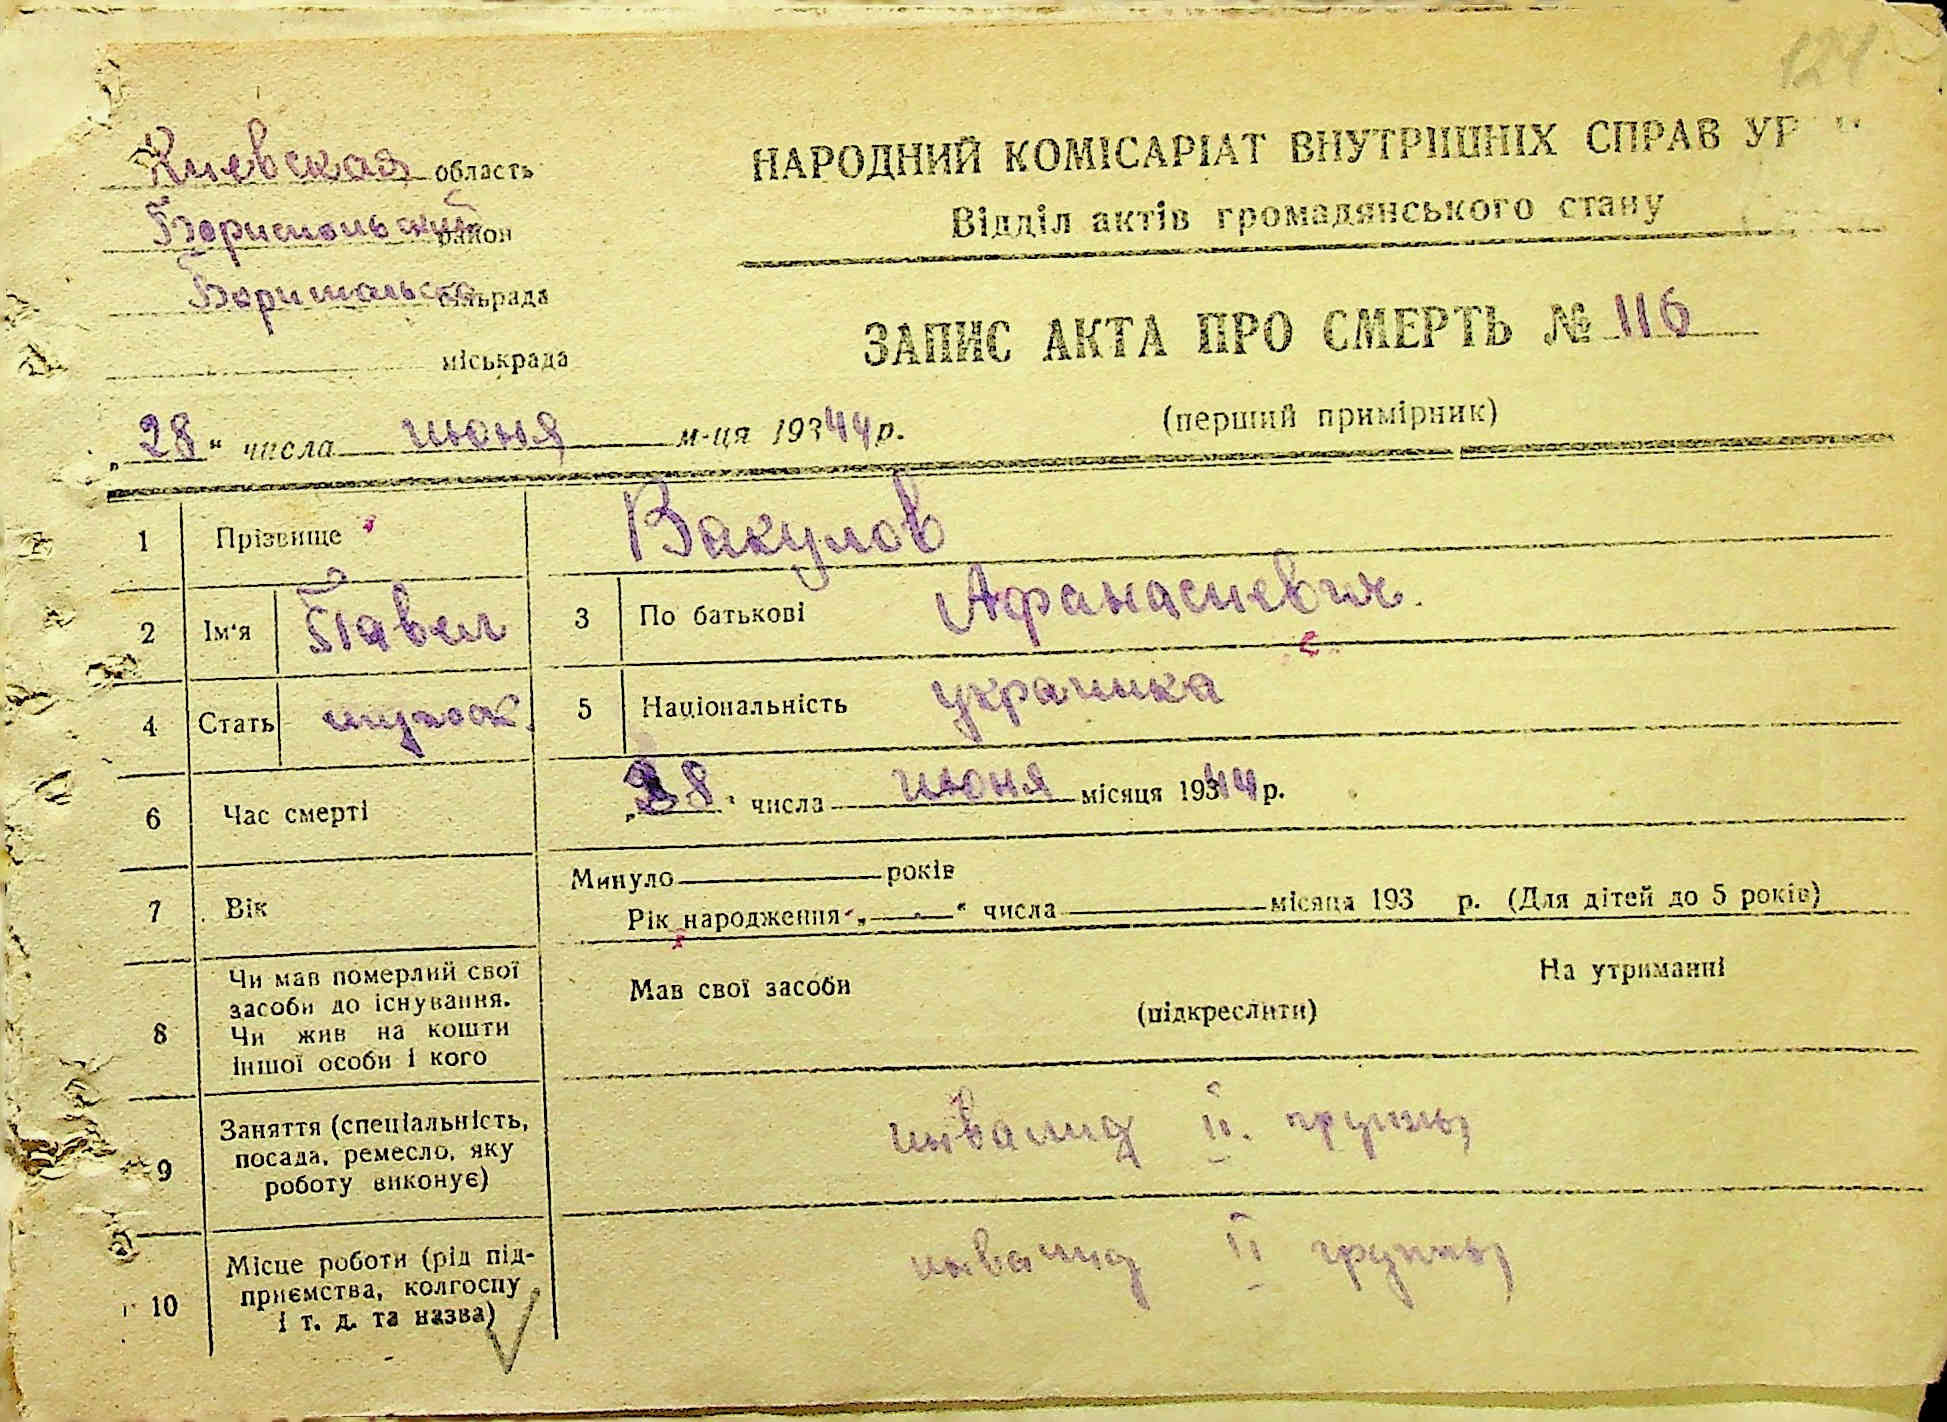 124
НАРОДНИЙ КОМІСАРІАТ ВНУТРІШНІХ СПРАВ УР
Відділ актів громадянського стану
Киевская область
Бориспольский район
Бориспольская сільрада
міськрада
ЗАПИС АКТА ПРО СМЕРТЬ № 116
(перший примірник)
„28“ числа июня м-ця 19344 р.
1 Прізвище Вакулов
2 Ім'я Павел 3 По батькові Афанасиевич.
4 Стать мужск. 5 Національність украинка
6 Час смерті „28“ числа июня місяця 19344 р.
7 Вік Минуло років
Рік народження „ “ числа місяця 193 р. (Для дітей до 5 років)
8 Чи мав померлий свої засоби до існування. Чи жив на кошти іншої особи і кого
Мав свої засоби (підкреслити) На утриманні
9 Заняття (спеціальність, посада, ремесло, яку роботу виконує)
инвалид II. группы
10 Місце роботи (рід підприємства, колгоспу і т. д. та назва)
инвалид II группы